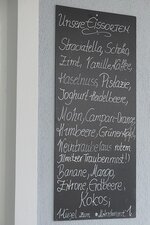 Unsere Eissorten
Straciatella, Schoko,
Zimt, Vanille, Kaffee,
Haselnuss, Pistazie,
Joghurt-Heidelbeere,
Mohn, Campari-Orange,
Himbeere, Grüner Apfel,
Weintraube (aus rotem
Traubenmost!)
Banane, Mango,
Zitrone, Erdbeere,
Kokos,
1 Kugel zum